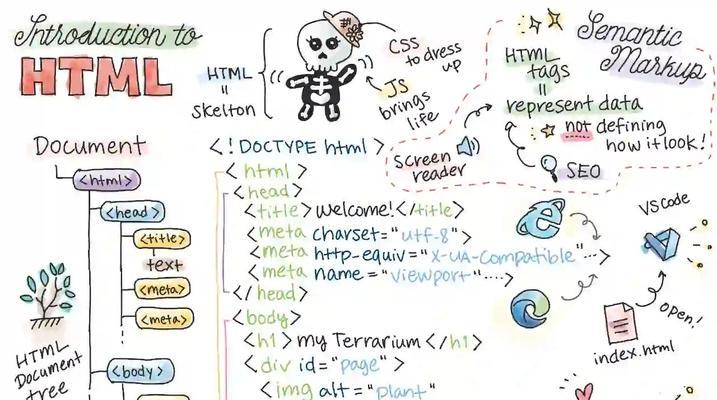 Introduction to
HTML
HTML
=
skelton
CSS
to dress
up
JS
brings
life
Semantic
Markup
HTML
tags
=
represent data
not defining
how it look!
SEO
screen
reader
Document
<html>
<head>
<title>
text
<meta>
<meta>
<body>
HTML
Document
tree
<!DOCTYPE html>
<html>
<head>
<title>Welcome!</title>
<meta charset="utf-8">
<meta http-equiv="X-UA-Compatible"...>
<meta name="viewport"....>
</head>
<body>
<h1>my Terrarium</h1>
<div id="page">
<img alt="plant"
VScode
open!
index.html